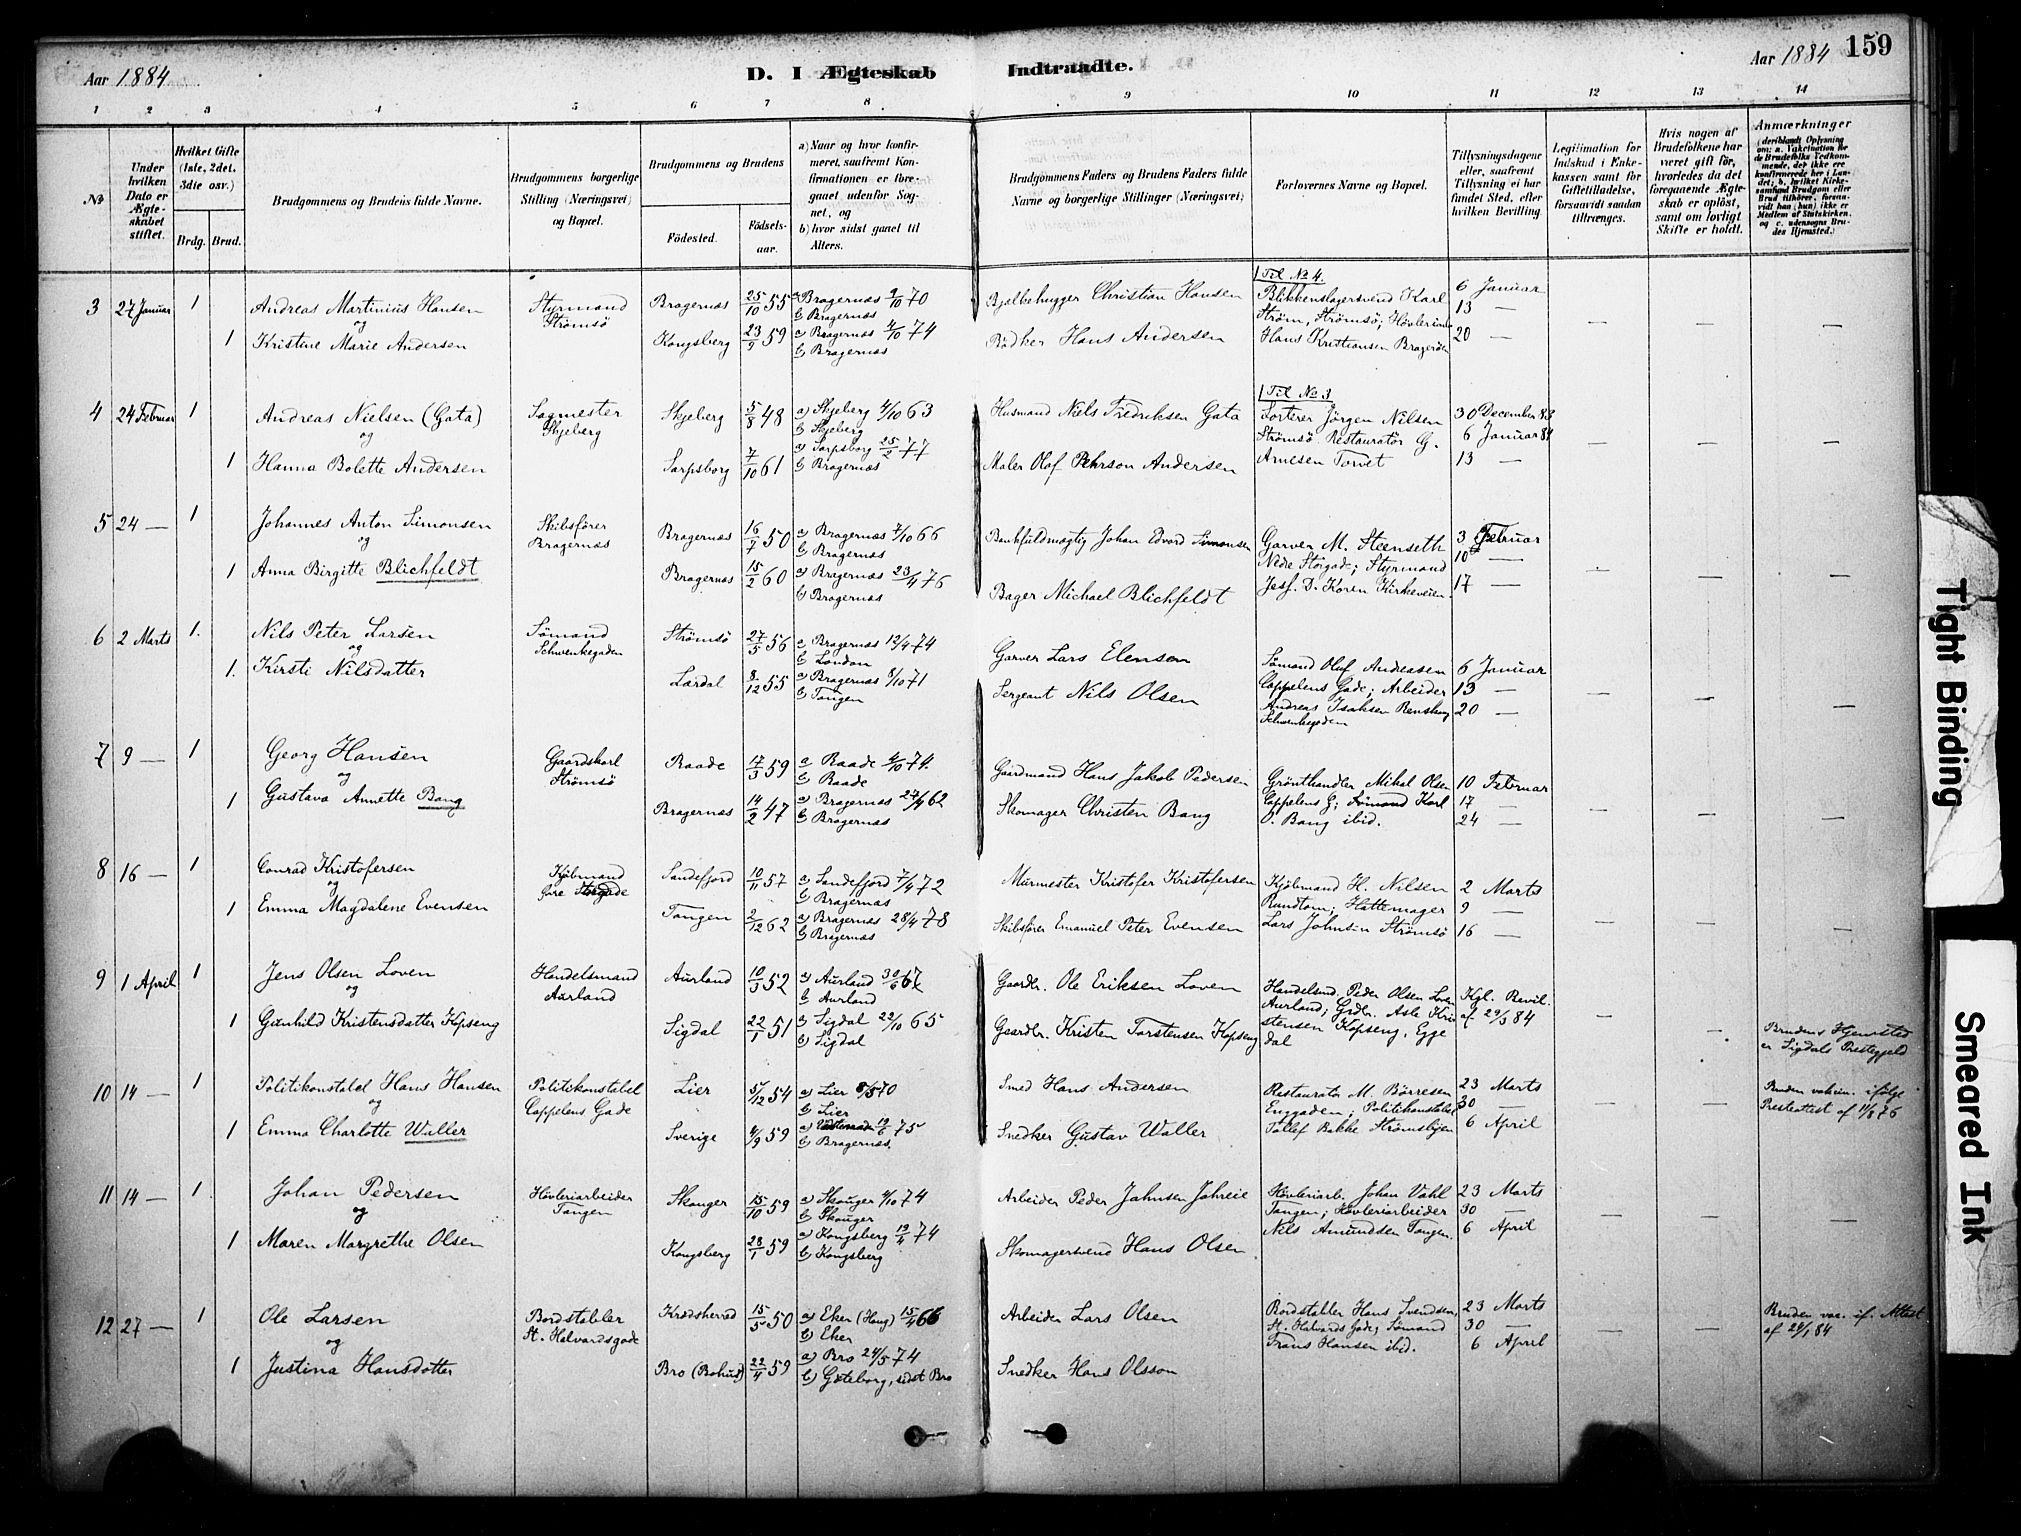 Aar 1884
D. I Ægteskab Indtraadte.
Aar 1884 159
1 2 3 4 5 6 7 8 9 10 11 12 13 14
No
Under hvilken Dato er Ægteskabet stiftet.
Hvilket Gifte (1ste, 2det, 3die osv.)
Brdg. Brud.
Brudgommens og Brudens fulde Navne.
Brudgommens borgerlige Stilling (Næringsvei) og Bopæl.
Brudgommens og Brudens
Fødested.
Fødselsaar.
a) Naar og hvor konfirmeret, saafremt Konfirmationen er foregaaet udenfor Sognet, og
b) hvor sidst gaaet til Alters.
Brudgommens Faders og Brudens Faders fulde Navne og borgerlige Stillinger (Næringsvei)
Forlovernes Navne og Bopæl.
Tillysningsdagene eller, saafremt Tillysning ei har fundet Sted, efter hvilken Bevilling.
Legitimation for Indskud i Enkekassen samt for Giftetilladelse, forsaavidt saadan tiltrænges.
Hvis nogen af Brudefolkene har været gift før, hvorledes da det foregaaende Ægteskab er opløst, samt om lovligt Skifte er holdt.
Anmærkninger (deriblandt Oplysning om: a. Vakcination for de Brudefolks Vedkommende, der ikke ere konfirmerede her i Landet; b. hvilket Kirkesamfund Brudgom eller Brud tilhører, forsaavidt han (hun) ikke er Medlem af Statskirken, og c. udensogns Brudes Hjemsted.)
3 27 Januar 1 Andreas Martinius Hansen Styrmand Strømsø Bragernæs 25/10 55 a) Bragernæs 9/10 70 b) Bragernæs Bjelkehugger Christian Hansen
og
1 Kristine Marie Andersen Kongsberg 23/9 59 a) Bragernæs 4/10 74 b) Bragernæs Bødker Hans Andersen
Til No 4.
Blikkenslagersvend Karl
Strøm, Strømsø; Høvleriarb
Hans Kristiansen Bragerøen
6 Januar
13 —
20 —
4 24 Februar 1 Andreas Nielsen (Gata) Sagmester Skjeberg Skjeberg 5/8 48 a) Skjeberg 4/10 63 b) Skjeberg Husmand Niels Fredriksen Gata
og
1 Hanna Bolette Andersen Sarpsborg 7/10 61 a) Sarpsborg 25/2 77 b) Bragernæs Maler Olof Pehrson Andersen
Til No 3
Sorterer Jörgen Nilsen
Strømsø Restauratör G.
Arnesen Torvet
30 December 83
6 Januar 84
13 —
5 24 — 1 Johannes Anton Simonsen Skibsfører Bragernæs Bragernæs 16/7 50 a) Bragernæs 7/10 66 b) Bragernæs Bankfuldmægtig Johan Edvard Simonsen
og
1 Anna Birgitte Blichfeldt Bragernæs 15/2 60 a) Bragernæs 23/4 76 b) Bragernæs Bager Michael Blichfeldt
Garver M. Steenseth
Nedre Storgade; Styrmand
Jesf. D. Koren Kirkeveien
3 Februar
10 —
17 —
6 2 Marts 1. Nils Peter Larsen Sømand Schwenkegaden Strømsø 27/5 56 a) Bragernæs 12/4 74 b) London Garver Lars Elensen
og
1. Kirsti Nilsdatter Lærdal 8/12 55 a) Bragernæs 8/10 71 b) Tangen Sergeant Nils Olsen
Sømand Oluf Andreasen
Cappelens Gade; Arbeider
Andreas Isaksen
Schwenkegaden
6 Januar
13 —
20 —
7 9 — 1 Georg Hansen Gaardskarl Strømsø Raade 17/3 59 a Raade 4/10 74. b) Raade Gaardmand Hans Jakob Pedersen
og
1 Gustava Annette Bang Bragernæs 14/2 47 a) Bragernæs 27/4 62 b) Bragernæs Skomager Christen Bang
Grønthandler Mikal Olsen
Cappelens G; Sømand Karl
O. Bang ibid.
10 Februar
17 —
24 —
8 16 — 1 Conrad Kristofersen Kjøbmand Øvre Storgade Sandefjord 10/11 57 a) Sandefjord 7/4 72 b) Bragernæs Murmester Kristofer Kristofersen
og
1 Emma Magdalene Evensen Tangen 2/12 62 a) Bragernæs 28/4 78 b) Bragernæs Skibsfører Emanuel Peter Evensen
Kjøbmand H. Nilsen
Rundtom; Hattemager
Lars Johnsen Strømsø
2 Marts
9 —
16 —
9 1 April 1 Jens Olsen Loven Handelsmand Aurland Aurland 10/3 52 a) Aurland 30/6 67 b) Aurland Gaardbr. Ole Eriksen Loven
og
1 Gunhild Kristensdatter Kopseng Sigdal 22/1 51 a) Sigdal 22/10 65 b) Sigdal Gaardbr. Kristen Torstensen Kopseng
Handelsmd. Peder Olsen Loven
Aurland; Grdbr. Asle Kri
stensen Kopseng, Egge
dal
Kgl. Bevil.
af 29/3 84
Brudens Hjemsted
er Sigdals Prestegjeld
10 14 — 1 Politikonstabel Hans Hansen Politikonstabel Cappelens Gade Lier 5/12 54 a) Lier 8/5 70 b) Lier Smed Hans Andersen
og
1 Emma Charlotte Waller Sverige 4/9 59 a) 19/6 75 b) Bragernæs. Snedker Gustav Waller
Restauratør M. Börresen
Enggaden; Politikonstabel
Tollef Bakke Strømsbyen
23 Marts
30 —
6 April
Bruden vakcin. ifølge
Presteattest af 11/8 76
11 14 — 1. Johan Pedersen Høvleriarbeider Tangen Skouger 15/10 59 a) Skouger 4/10 74 b) Skouger Arbeider Peder Jahnsen Jahreie
og
1 Maren Margrethe Olsen Kongsberg 28/1 59 a) Kongsberg 19/4 74 b) Kongsberg Skomagersvend Hans Olsen
Høvleriarb. Johan Vahl
Tangen; Høvleriarbeider
Nils Amundsen Tangen.
23 Marts
30 —
6 April
12 27 — 1 Ole Larsen Bordstabler St. Halvardsgade Krødsherred 15/5 50 a) Eker (Haug) 15/4 66 b) Eker Arbeider Lars Olsen
og
1 Justina Hansdotter Bro (Bohus) 22/4 59 a) Bro 24/5 74 b) Gøteborg, sidst Bro Snedker Hans Olsson
Bordstabler Hans Svendsen
St. Halvards Gade; Sømand
Frans Hansen ibid.
23 Marts
30 —
6 April
Bruden vac. if. Attest
af 24/1 84
Tight Binding
Smeared Ink